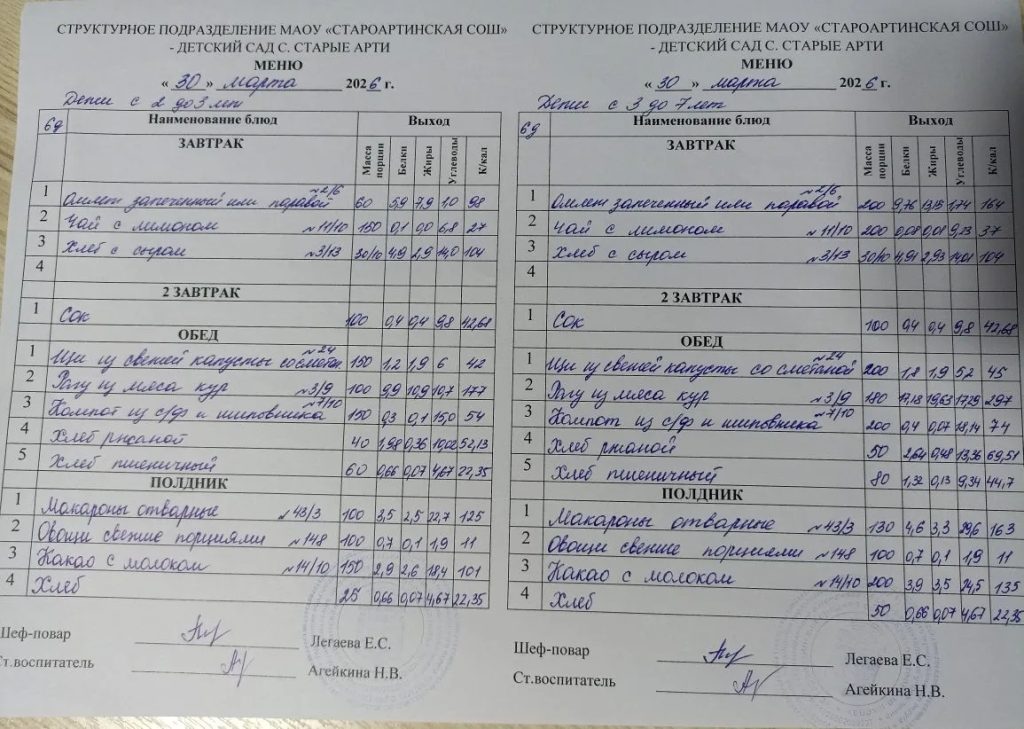 СТРУКТУРНОЕ ПОДРАЗДЕЛЕНИЕ МАОУ «СТАРОАРТИНСКАЯ СОШ»
- ДЕТСКИЙ САД С. СТАРЫЕ АРТИ
МЕНЮ
« 30 » марта 2026 г.
Дети с 2 до 3 лет
6д Наименование блюд Выход
ЗАВТРАК Масса порции Белки Жиры Углеводы К/кал
1 Омлет запеченный или паровой №2/6 60 5,9 7,9 1,0 98
2 Чай с лимоном №11/10 150 0,1 0,0 6,8 27
3 Хлеб с сыром №3/13 30/10 4,9 2,9 14,0 104
4
2 ЗАВТРАК
1 Сок 100 0,4 0,4 9,8 42,68
ОБЕД
1 Щи из свежей капусты со сметан. №24 150 1,2 1,9 6 42
2 Рагу из мяса кур №3/9 100 9,9 10,9 10,7 177
3 Компот из с/ф и шиповника №7/10 150 0,3 0,1 15,0 54
4 Хлеб ржаной 40 1,98 0,36 10,02 52,13
5 Хлеб пшеничный 60 0,66 0,07 4,67 22,35
ПОЛДНИК
1 Макароны отварные №43/3 100 3,5 2,5 22,7 125
2 Овощи свежие порциями №148 100 0,7 0,1 1,9 11
3 Какао с молоком №14/10 150 2,9 2,6 18,4 101
4 Хлеб 25 0,66 0,07 4,67 22,35
Шеф-повар Легаева Е.С.
Ст.воспитатель Агейкина Н.В.
СТРУКТУРНОЕ ПОДРАЗДЕЛЕНИЕ МАОУ «СТАРОАРТИНСКАЯ СОШ»
- ДЕТСКИЙ САД С. СТАРЫЕ АРТИ
МЕНЮ
« 30 » марта 2026 г.
Дети с 3 до 7 лет
6д Наименование блюд Выход
ЗАВТРАК Масса порции Белки Жиры Углеводы К/кал
1 Омлет запеченный или паровой №2/6 200 9,76 13,13 1,74 164
2 Чай с лимоном №11/10 200 0,08 0,01 9,13 37
3 Хлеб с сыром №3/13 30/10 4,91 2,93 14,01 104
4
2 ЗАВТРАК
1 Сок 100 0,4 0,4 9,8 42,68
ОБЕД
1 Щи из свежей капусты со сметаной №24 200 1,8 1,9 5,2 45
2 Рагу из мяса кур №3/9 180 19,63 17,29 297
3 Компот из с/ф и шиповника №7/10 200 0,4 0,07 18,14 74
4 Хлеб ржаной 50 2,64 0,48 13,36 69,51
5 Хлеб пшеничный 80 1,32 0,13 9,34 44,7
ПОЛДНИК
1 Макароны отварные №43/3 130 4,6 3,3 29,6 163
2 Овощи свежие порциями №148 100 0,7 0,1 1,9 11
3 Какао с молоком №14/10 200 3,9 3,5 24,5 135
4 Хлеб 50 0,66 0,07 4,67 22,35
Шеф-повар Легаева Е.С.
Ст.воспитатель Агейкина Н.В.